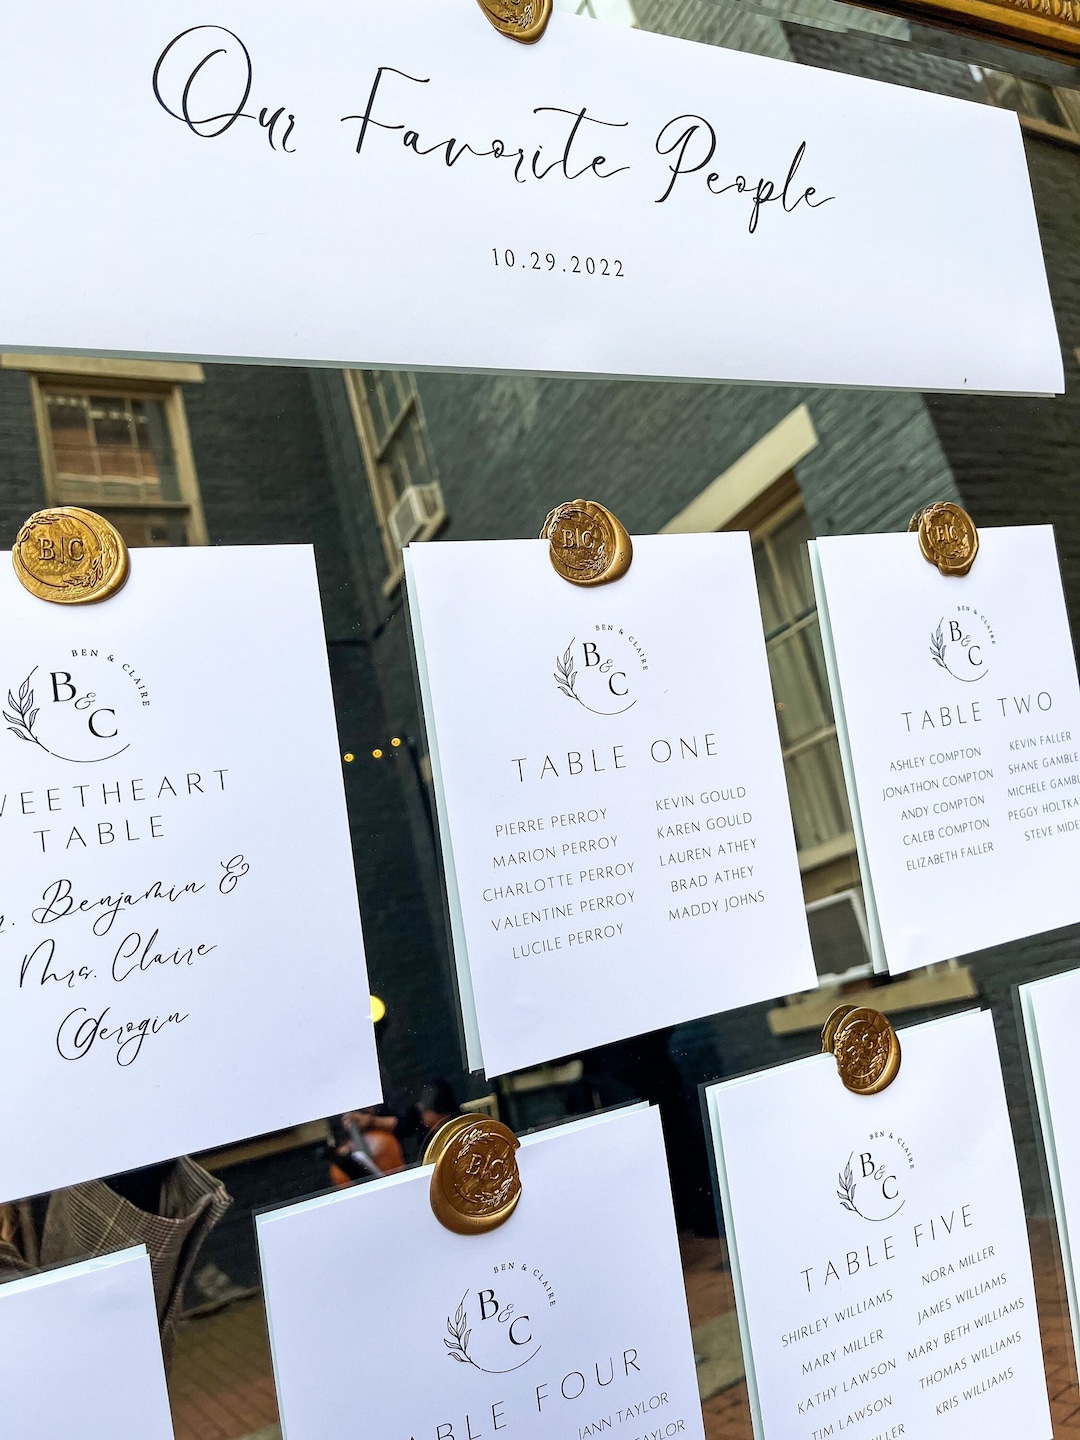 Our Favorite People
10.29.2022
B|C
BEN & CLAIRE
B&C
TABLE
Benjamin &
Mrs. Claire
B|C
BEN & CLAIRE
B&C
TABLE ONE
PIERRE PERROY
MARION PERROY
CHARLOTTE PERROY
VALENTINE PERROY
LUCILE PERROY
KEVIN GOULD
KAREN GOULD
LAUREN ATHEY
BRAD ATHEY
MADDY JOHNS
B|C
BEN & CLAIRE
B&C
TABLE TWO
ASHLEY COMPTON
JONATHON COMPTON
ANDY COMPTON
CALEB COMPTON
ELIZABETH FALLER
KEVIN FALLER
SHANE GAMBLE
MICHELE
PEGGY
STEVE
B|C
BEN & CLAIRE
B&C
FOUR
TAYLOR
TAYLOR
BEN & CLAIRE
B&C
TABLE FIVE
SHIRLEY WILLIAMS
MARY MILLER
KATHY LAWSON
TIM LAWSON
NORA MILLER
JAMES WILLIAMS
MARY BETH WILLIAMS
THOMAS WILLIAMS
KRIS WILLIAMS